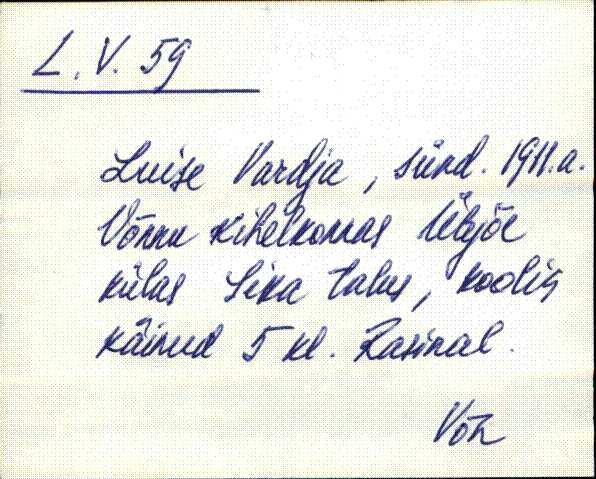 L.V. 59
Luise Vardja, sünd. 1911.a.
Võnnu kihelkonnas Ülejõe
külas Sika talus, koolis
käinud 5 kl. Rasinal.
Võn